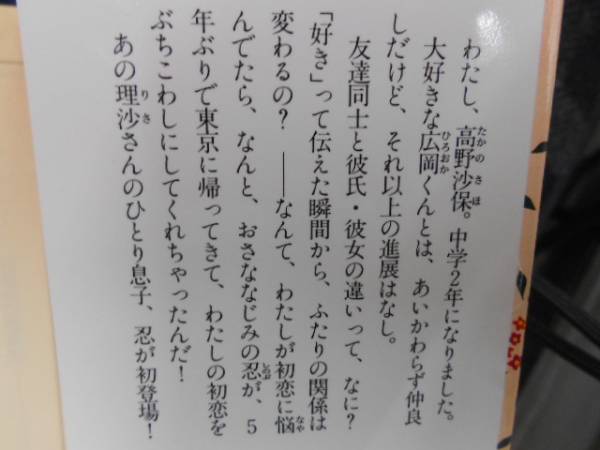 わたし、高野沙保。中学2年になりました。
大好きな広岡くんとは、あいかわらず仲良
しだけど、それ以上の進展はなし。
友達同士と彼氏・彼女の違いって、なに？
「好き」って伝えた瞬間から、ふたりの関係は
変わるの？　――なんて、わたしが初恋に悩
んでたら、なんと、おさななじみの忍が、5
年ぶりで東京に帰ってきて、わたしの初恋を
ぶちこわしにしてくれちゃったんだ！
あの理沙さんのひとり息子、忍が初登場！